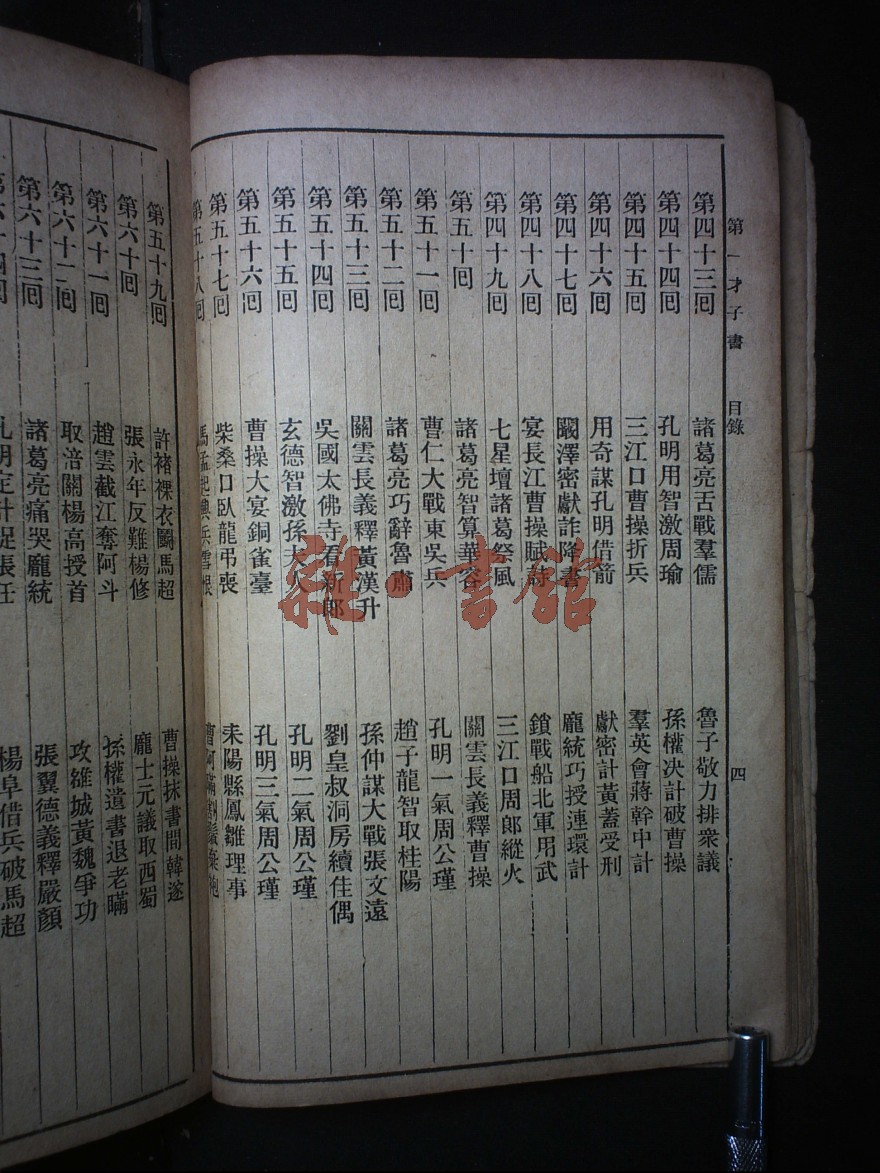 第一才子書 目錄 四
第四十三囘 諸葛亮舌戰羣儒 魯子敬力排衆議
第四十四囘 孔明用智激周瑜 孫權决計破曹操
第四十五囘 三江口曹操折兵 羣英會蔣幹中計
第四十六囘 用奇謀孔明借箭 獻密計黃蓋受刑
第四十七囘 闞澤密獻詐降書 龐統巧授連環計
第四十八囘 宴長江曹操賦詩 鎖戰船北軍用武
第四十九囘 七星壇諸葛祭風 三江口周郎縱火
第五十囘 諸葛亮智算華容 關雲長義釋曹操
第五十一囘 曹仁大戰東吳兵 孔明一氣周公瑾
第五十二囘 諸葛亮巧辭魯肅 趙子龍智取桂陽
第五十三囘 關雲長義釋黃漢升 孫仲謀大戰張文遠
第五十四囘 吳國太佛寺看新郎 劉皇叔洞房續佳偶
第五十五囘 玄德智激孫夫人 孔明二氣周公瑾
第五十六囘 曹操大宴銅雀臺 孔明三氣周公瑾
第五十七囘 柴桑口臥龍弔喪 耒陽縣鳳雛理事
第五十八囘 馬孟起興兵雪恨 曹阿瞞割鬚棄袍
第五十九囘 許褚裸衣鬭馬超 曹操抹書間韓遂
第六十囘 張永年反難楊修 龐士元議取西蜀
第六十一囘 趙雲截江奪阿斗 孫權遺書退老瞞
第六十二囘 取涪關楊高授首 攻雒城黃魏爭功
第六十三囘 諸葛亮痛哭龐統 張翼德義釋嚴顏
第六十四囘 孔明定計捉張任 楊阜借兵破馬超
雜·書館